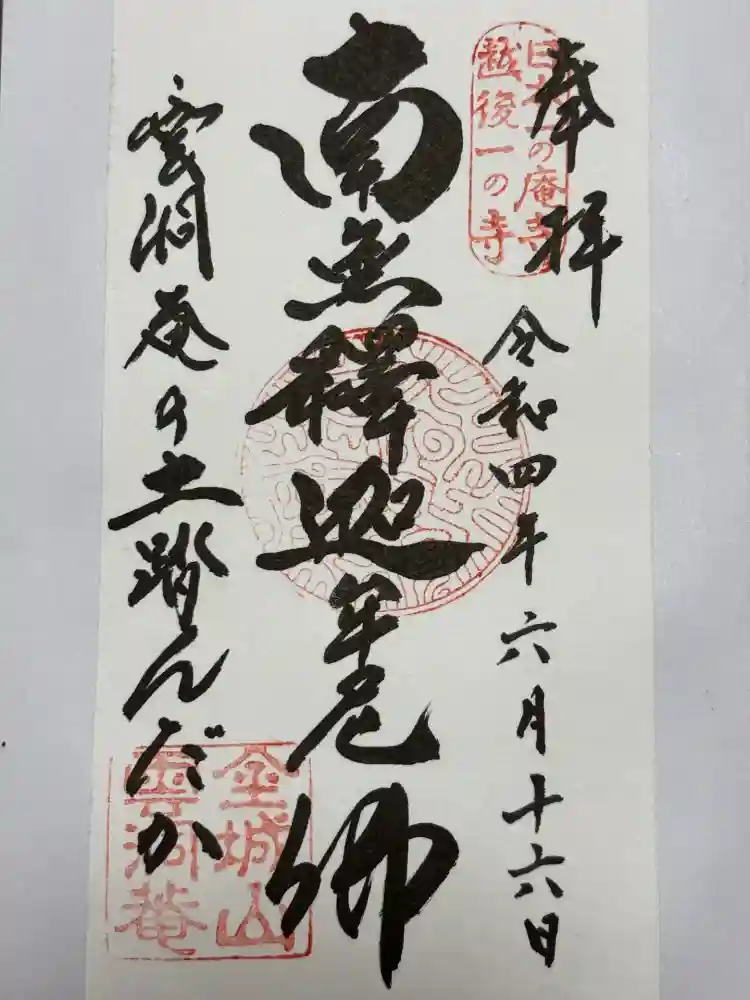 奉拝
日本一の庵寺
越後一の寺
令和四年六月十六日
南無釋迦牟尼佛
雲洞庵の土踏んだか
金城山
雲洞菴